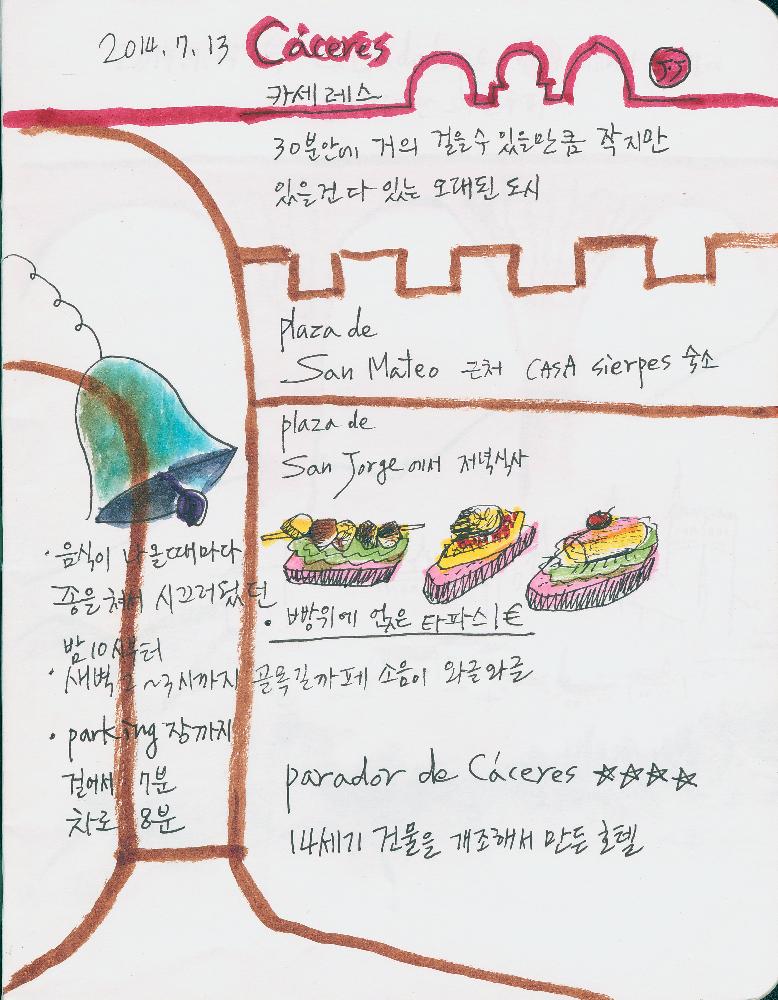 2014.7.13 Cáceres
카세레스
30분안에 거의 걸을수 있을만큼 작지만
있을건 다 있는 오래된 도시
plaza de
San Mateo 근처 CASA sierpes 숙소
plaza de
San Jorge에서 저녁식사
· 음식이 나올때마다
종을 쳐서 시끄러웠던
• 빵위에 얹은 타파스 1€
밤 10시부터
· 새벽 2~3시까지 골목길까페 소음이 와글와글
• parking장까지
걸어서 7분
차로 8분
parador de Cáceres ☆☆☆☆
14세기 건물을 개조해서 만든 호텔